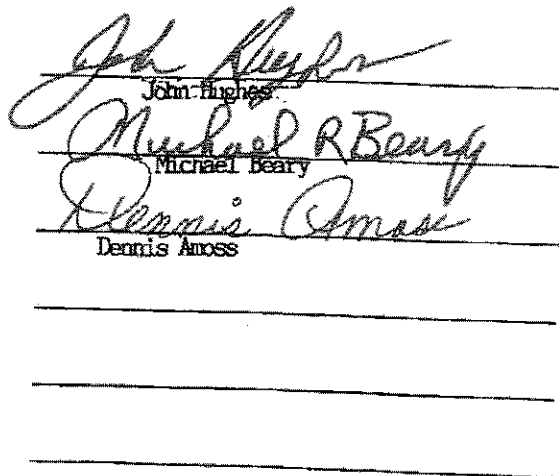 John Hughes
John Hughes
Michael R Beary
Michael Beary
Dennis Amoss
Dennis Amoss